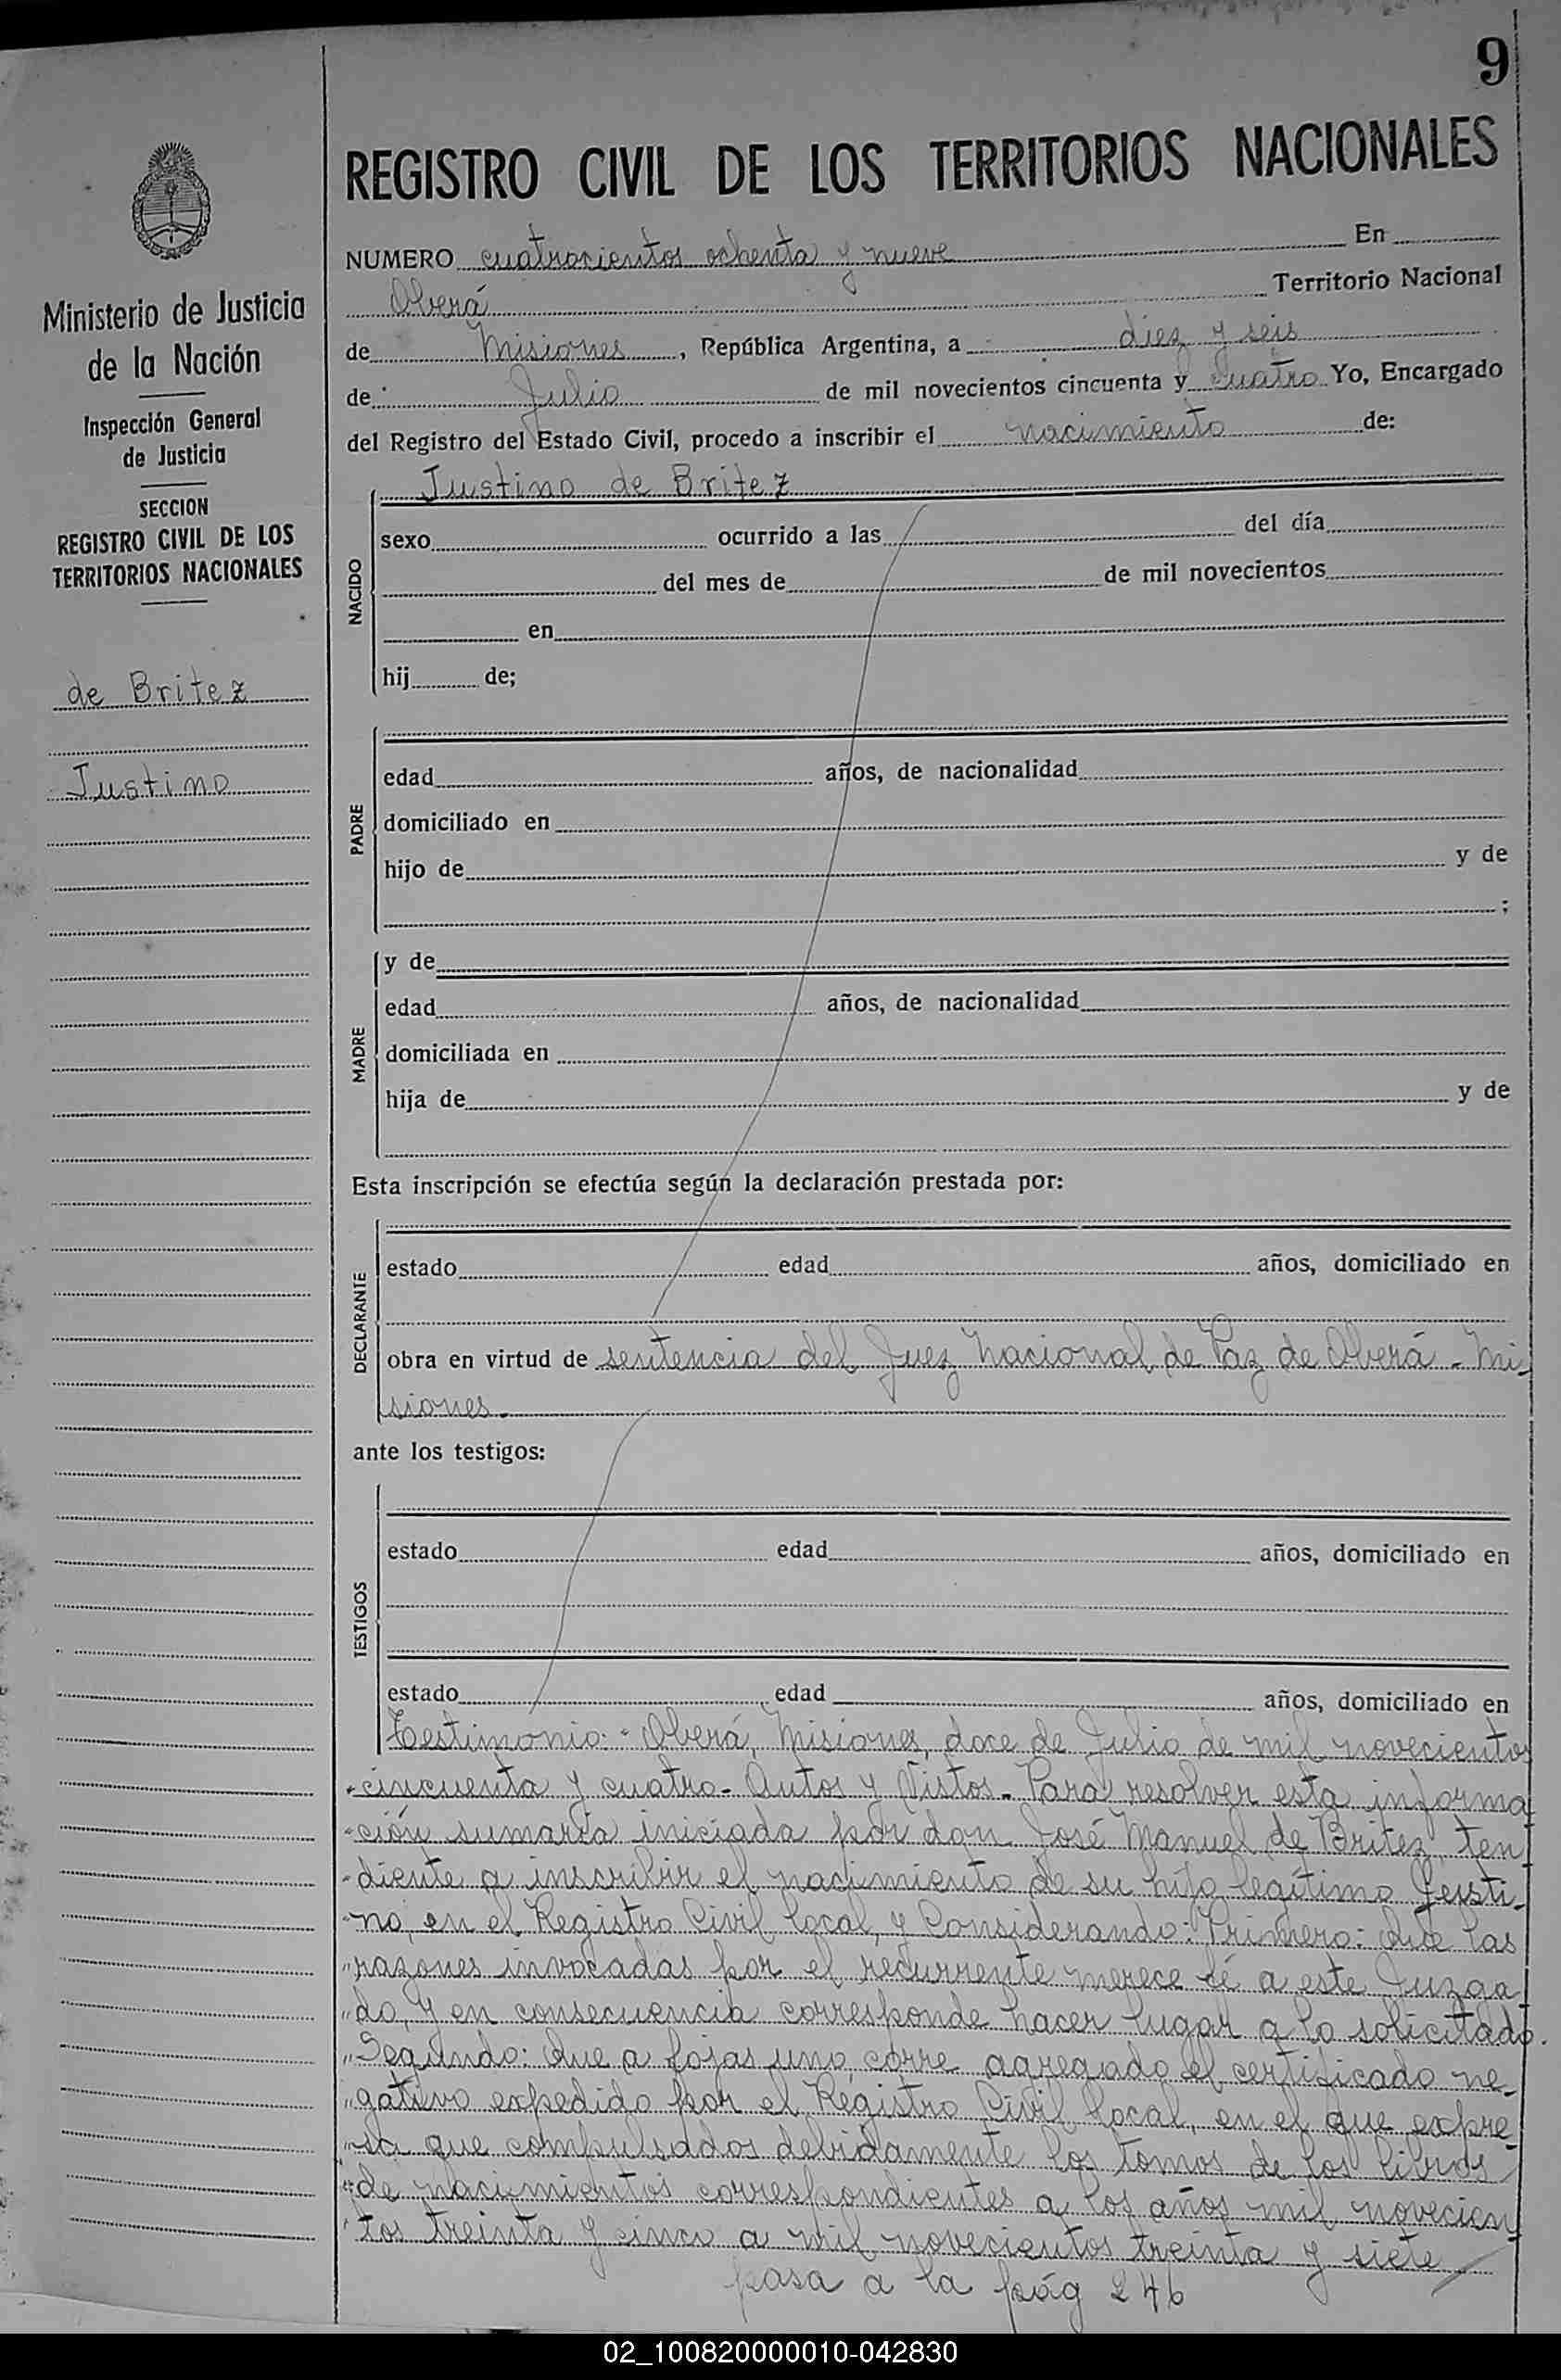 9
REGISTRO CIVIL DE LOS TERRITORIOS NACIONALES
Ministerio de Justicia
de la Nación
Inspección General
de Justicia
SECCION
REGISTRO CIVIL DE LOS
TERRITORIOS NACIONALES
de Britez
Justino
NUMERO cuatrocientos ochenta y nueve En
Oberá Territorio Nacional
de Misiones, República Argentina, a diez y seis
de Julio de mil novecientos cincuenta y cuatro Yo, Encargado
del Registro del Estado Civil, procedo a inscribir el nacimiento de:
Justino de Britez
NACIDO
sexo ocurrido a las del día
del mes de de mil novecientos
en
hij de;
PADRE
edad años, de nacionalidad
domiciliado en
hijo de y de
;
MADRE
y de
edad años, de nacionalidad
domiciliada en
hija de y de
Esta inscripción se efectúa según la declaración prestada por:
DECLARANTE
estado edad años, domiciliado en
obra en virtud de sentencia del Juez Nacional de Paz de Oberá - Mi-
siones.
ante los testigos:
TESTIGOS
estado edad años, domiciliado en
estado edad años, domiciliado en
Testimonio: - Oberá, Misiones, doce de Julio de mil novecientos
cincuenta y cuatro - Autos y Vistos - Para resolver esta informa
ción sumaria iniciada por don José Manuel de Britez, ten-
diente a inscribir el nacimiento de su hijo legítimo Justi-
no, en el Registro Civil local, y Considerando: Primero: Que las
razones invocadas por el recurrente merece fé a este Juzga-
do, y en consecuencia corresponde hacer lugar a lo solicitado.
Segundo: Que a fojas uno corre agregado el certificado ne-
gativo expedido por el Registro Civil local, en el que expre-
sa que compulsados debidamente los tomos de los libros
de nacimientos correspondientes a los años mil novecien-
tos treinta y cinco a mil novecientos treinta y siete
pasa a la pág 246
02_100820000010-042830